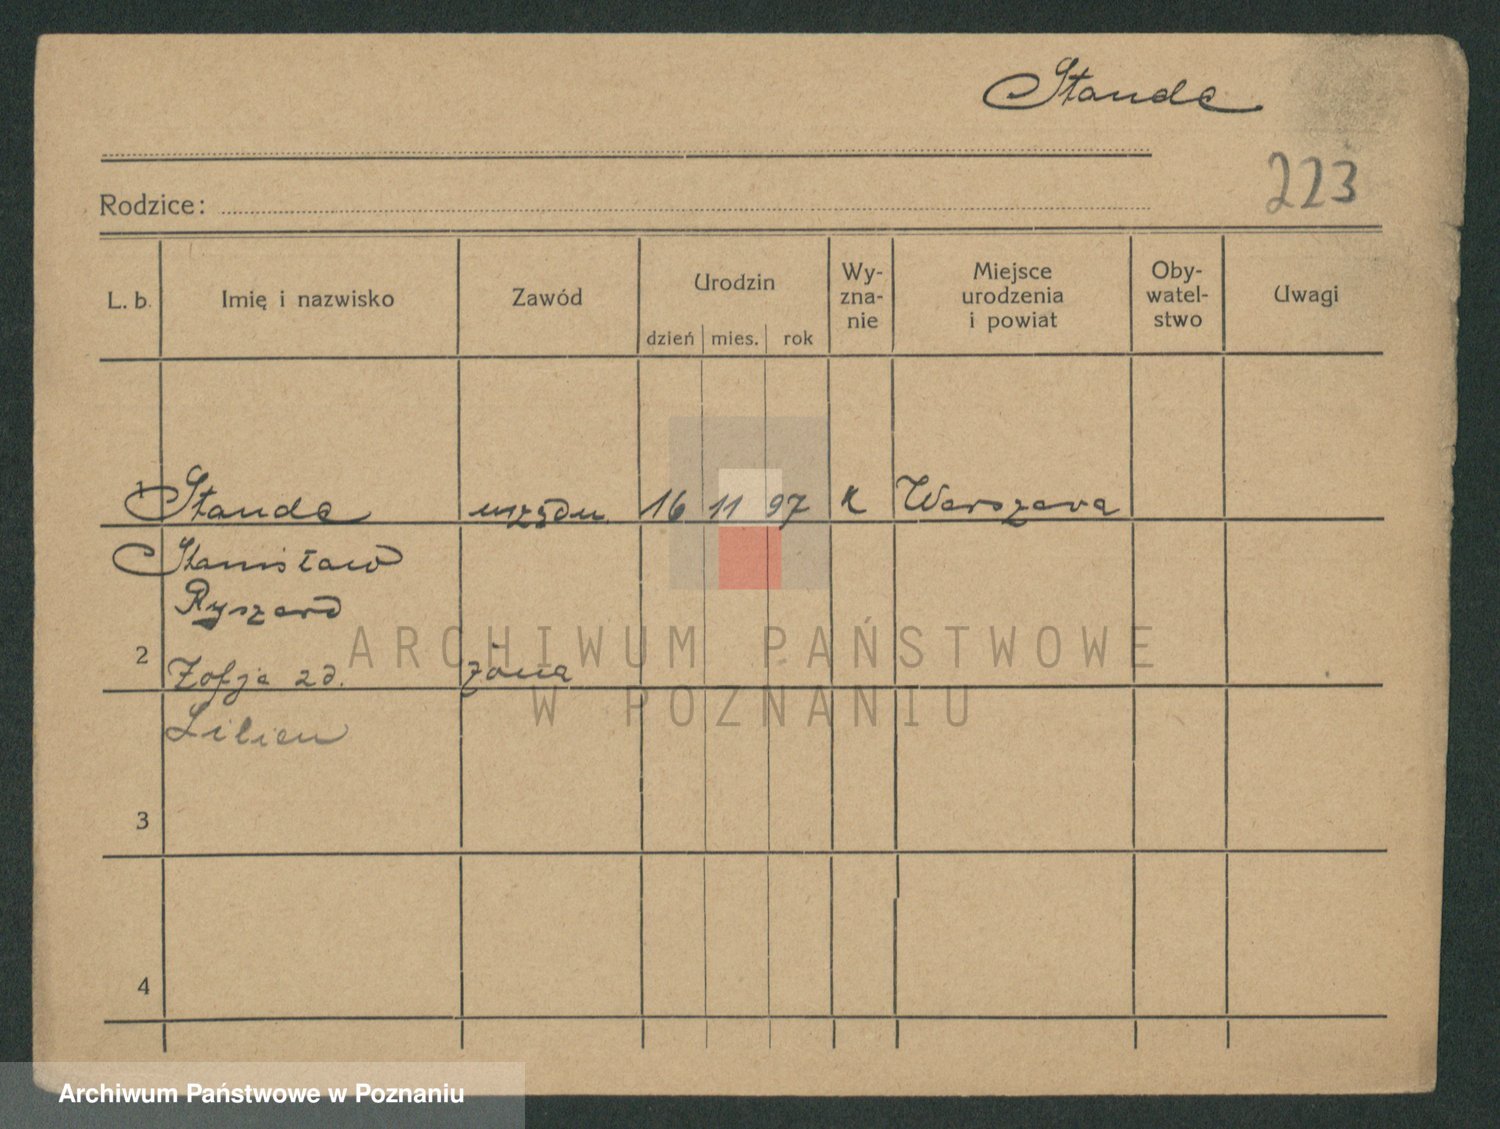 Stande
223
Rodzice:
L. b. Imię i nazwisko Zawód Urodzin Wy-zna-nie Miejsce urodzenia i powiat Oby-watel-stwo Uwagi
dzień mies. rok
1 Stande urzędn 16 11 97 k Warszawa
Stanisław
Ryszard
2 Zofja zd. żona
Lilien
3
4
ARCHIWUM PAŃSTWOWE
W POZNANIU
Archiwum Państwowe w Poznaniu